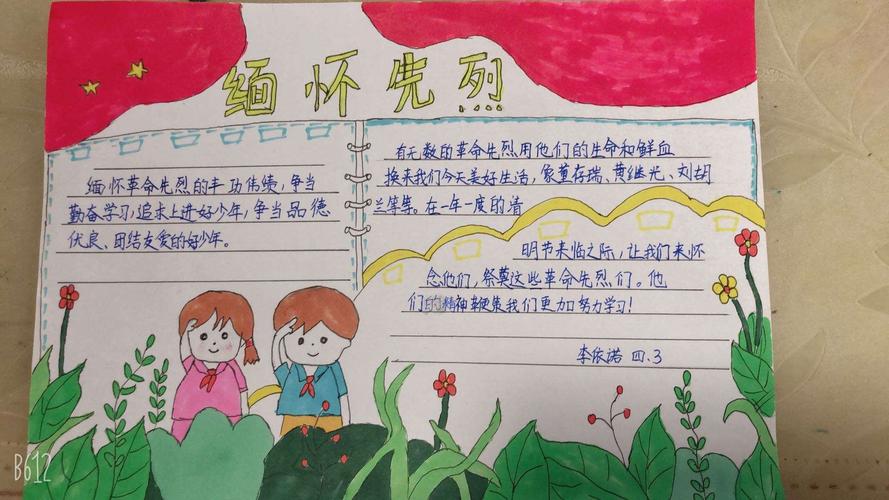 缅怀先烈
缅怀革命先烈的丰功伟绩,争当
勤奋学习,追求上进好少年,争当品德
优良、团结友爱的好少年。
有无数的革命先烈用他们的生命和鲜血
换来我们今天美好生活,象董存瑞、黄继光、刘胡
兰等等。在一年一度的清
明节来临之际,让我们来怀
念他们,祭奠这些革命先烈们。他
们的精神鞭策我们更加努力学习!
李依诺 四.3
B612